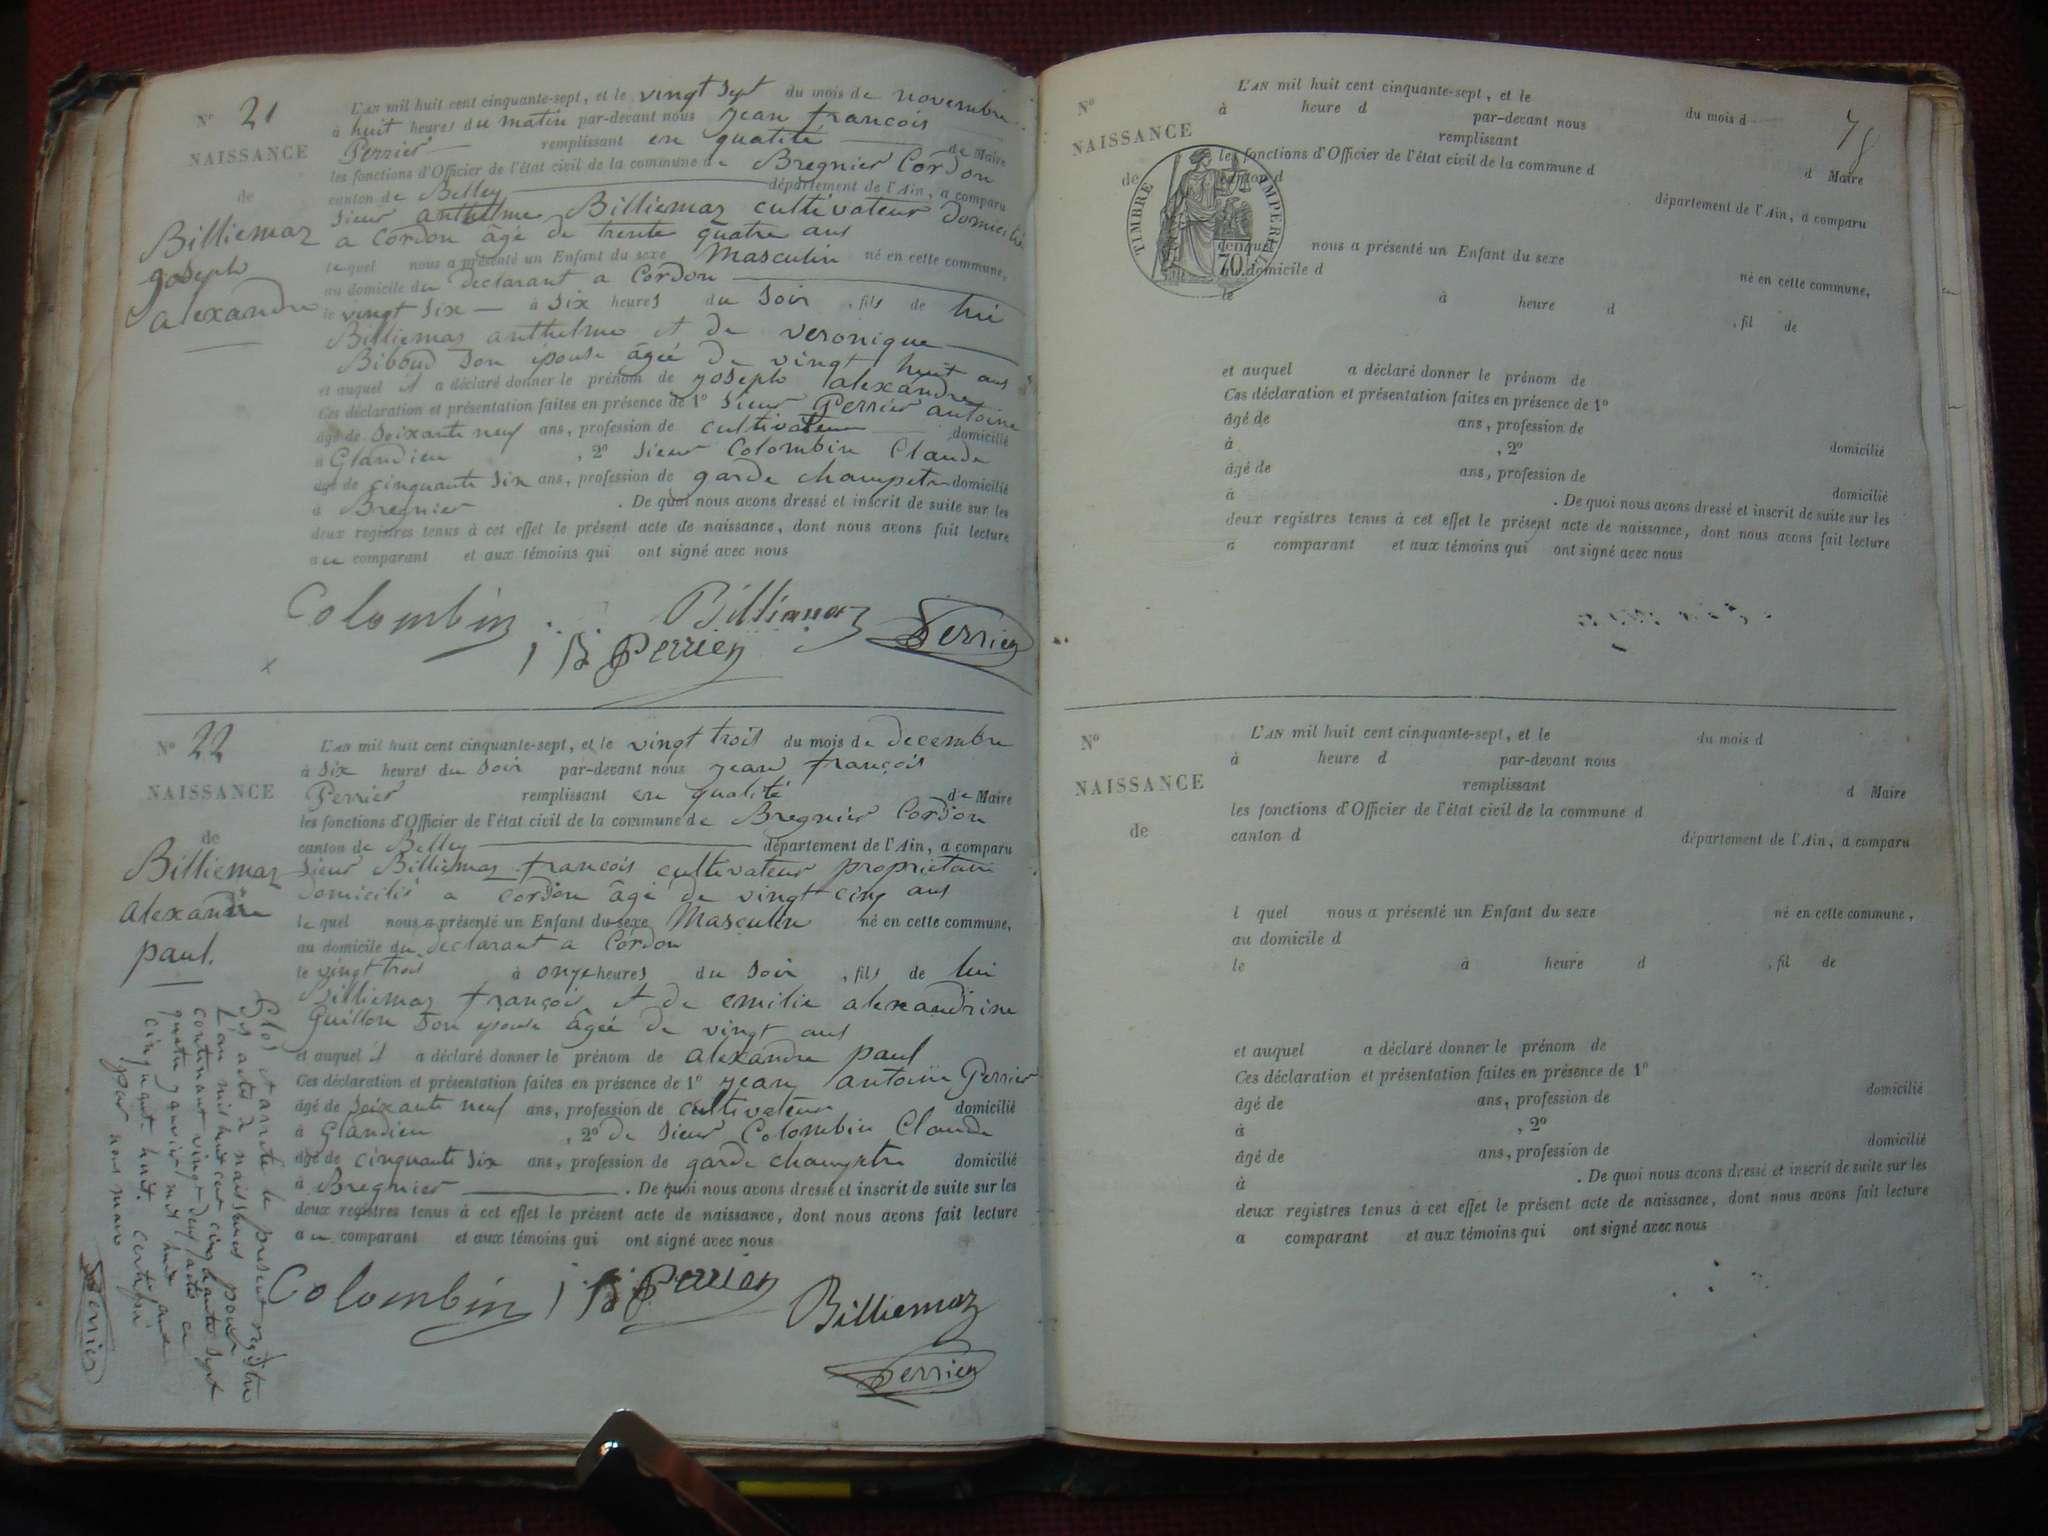 N° 21
NAISSANCE
de
Billiemaz
joseph
alexandre
L'AN mil huit cent cinquante-sept, et le vingt sept du mois de novembre
à huit heures du matin par-devant nous jean francois
Perrier remplissant en qualité de Maire
les fonctions d'Officier de l'état civil de la commune de Bregnier Cordon
canton de Belley département de l'Ain, a comparu
sieur anthelme Billiemaz cultivateur domicilié
a Cordon âgé de trente quatre ans
lequel nous a présenté un Enfant du sexe Masculin né en cette commune,
au domicile du declarant a Cordon
le vingt six à six heures du soir, fils de lui
Billiemaz anthelme et de veronique
Biboud son épouse âgée de vingt huit ans
et auquel il a déclaré donner le prénom de joseph alexandre
Ces déclaration et présentation faites en présence de 1° sieur Perrier antoine
âgé de soixante neuf ans, profession de cultivateur domicilié
à Glandieu, 2° sieur Colombin Claude
âgé de cinquante six ans, profession de garde champetre domicilié
à Bregnier. De quoi nous avons dressé et inscrit de suite sur les
deux registres tenus à cet effet le présent acte de naissance, dont nous avons fait lecture
au comparant et aux témoins qui ont signé avec nous
Colombin Billiemaz
Perrier Perrier
N° 22
NAISSANCE
de
Billiemaz
alexandre
paul.
L'AN mil huit cent cinquante-sept, et le vingt trois du mois de decembre
à six heures du soir par-devant nous jean françois
Perrier remplissant en qualité de Maire
les fonctions d'Officier de l'état civil de la commune de Bregnier Cordon
canton de Belley département de l'Ain, a comparu
sieur Billiemaz françois cultivateur proprietaire
domicilié a cordon âgé de vingt cinq ans
lequel nous a présenté un Enfant du sexe Masculin né en cette commune,
au domicile du declarant a Cordon
le vingt trois à onze heures du soir, fils de lui
Billiemaz françois et de emilie alexandrine
Guillon son epouse âgée de vingt ans
et auquel il a déclaré donner le prénom de alexandre paul
Ces déclaration et présentation faites en présence de 1° jean antoine Perrier
âgé de soixante neuf ans, profession de cultivateur domicilié
à Glandieu, 2° de sieur Colombin Claude
âgé de cinquante six ans, profession de garde champetre domicilié
à Bregnier. De quoi nous avons dressé et inscrit de suite sur les
deux registres tenus à cet effet le présent acte de naissance, dont nous avons fait lecture
au comparant et aux témoins qui ont signé avec nous
Colombin Perrier Billiemaz
Perrier
Clos et arrêté le present registre
des actes de naissances pour
L'an mil huit cent cinquante sept
contenant vingt deux actes ce
quatre janvier mil huit cent
cinquante huit. certifié
par nous maire
Perrier
N°
NAISSANCE
de
TIMBRE IMPERIAL
70
L'AN mil huit cent cinquante-sept, et le du mois d
à heure d par-devant nous
remplissant d Maire
les fonctions d'Officier de l'état civil de la commune d
canton d département de l'Ain, a comparu
lequel nous a présenté un Enfant du sexe né en cette commune,
au domicile d
le à heure d, fil de
et auquel a déclaré donner le prénom de
Ces déclaration et présentation faites en présence de 1°
âgé de ans, profession de domicilié
à, 2°
âgé de ans, profession de domicilié
à. De quoi nous avons dressé et inscrit de suite sur les
deux registres tenus à cet effet le présent acte de naissance, dont nous avons fait lecture
a comparant et aux témoins qui ont signé avec nous
N°
NAISSANCE
de
L'AN mil huit cent cinquante-sept, et le du mois d
à heure d par-devant nous
remplissant d Maire
les fonctions d'Officier de l'état civil de la commune d
canton d département de l'Ain, a comparu
l quel nous a présenté un Enfant du sexe né en cette commune,
au domicile d
le à heure d, fil de
et auquel a déclaré donner le prénom de
Ces déclaration et présentation faites en présence de 1°
âgé de ans, profession de domicilié
à, 2°
âgé de ans, profession de domicilié
à. De quoi nous avons dressé et inscrit de suite sur les
deux registres tenus à cet effet le présent acte de naissance, dont nous avons fait lecture
a comparant et aux témoins qui ont signé avec nous